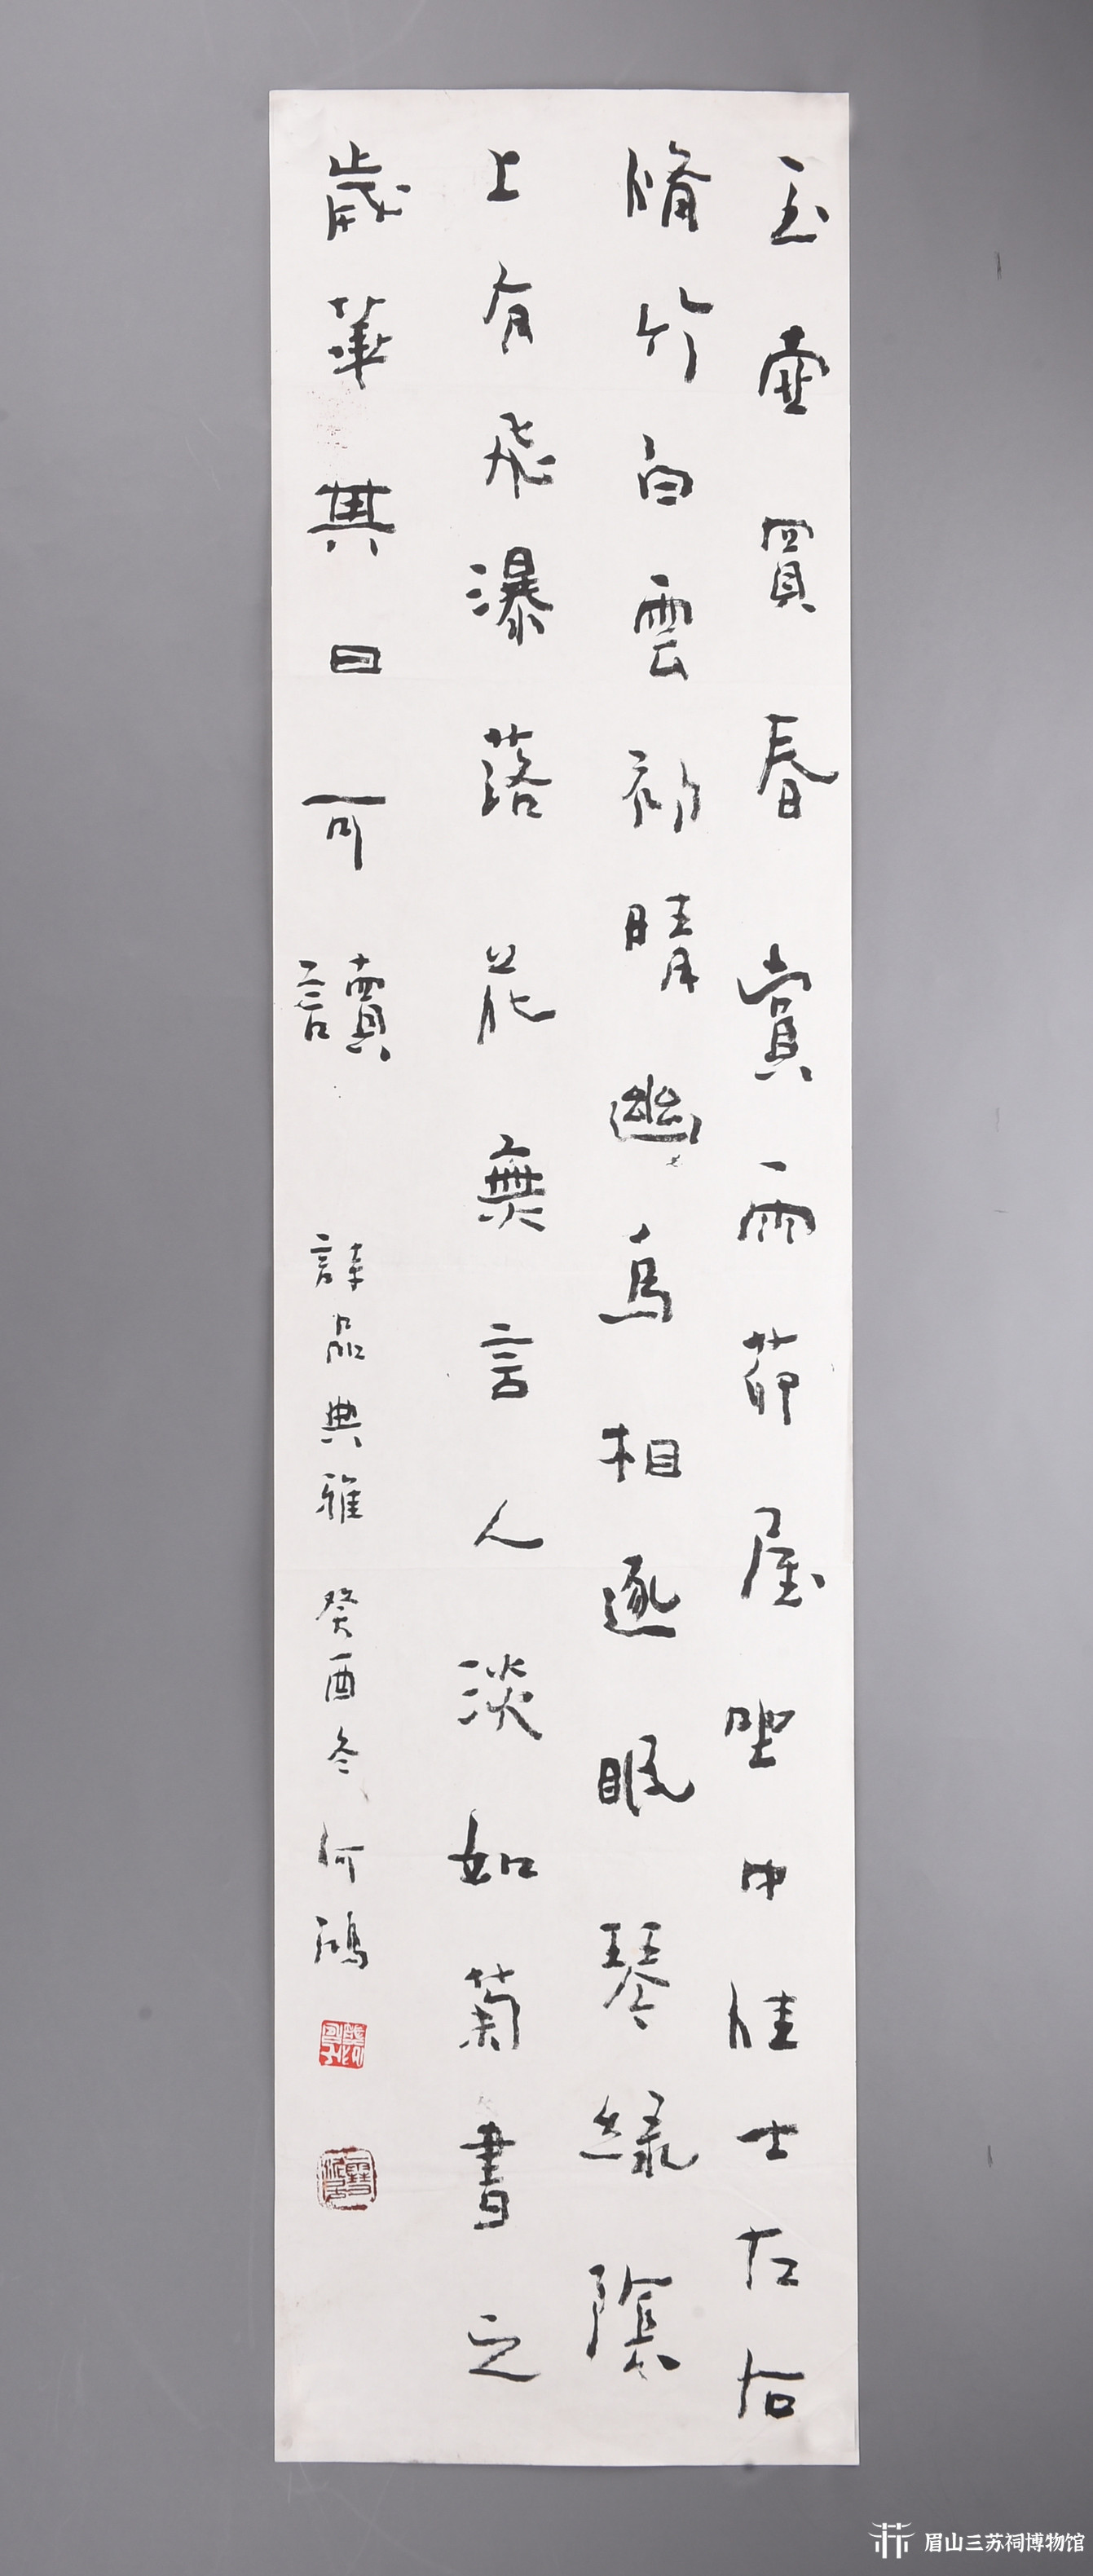 玉壺買春賞雨茆屋坐中佳士左右
脩竹白雲初晴幽鳥相逐眠琴綠陰
上有飛瀑落花無言人淡如菊書之
歲華其曰可讀
詩品典雅 癸酉冬 何鴻
眉山三苏祠博物馆